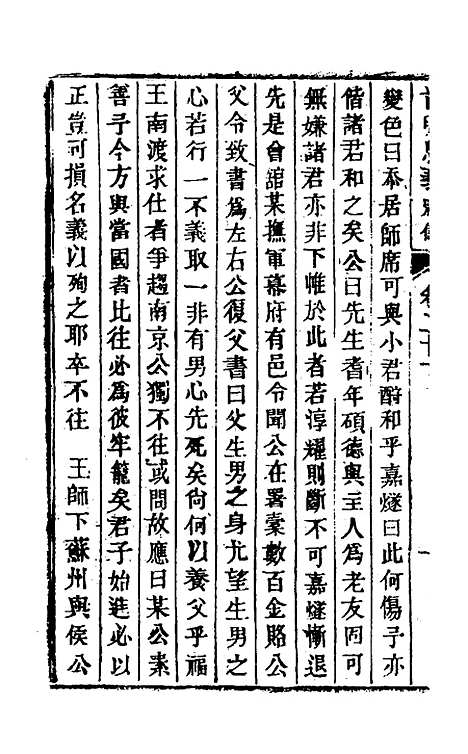 變色曰忝居師席可與小君酧和乎嘉燧曰此何傷予亦
偕諸君和之矣公曰先生耆年碩德與主人爲老友固可
無嫌諸君亦非下帷於此者若淳耀則斷不可嘉燧慚退
先是曾舘某撫軍幕府有邑令聞公在署槖數百金賂公
父令致書爲左右公復父書曰父生男之身尤望生男之
心若行一不義取一非有男心先死矣尙何以養父乎福
王南渡求仕者爭趨南京公獨不往或問故應曰某公素
善予今方與當國者比往必爲彼牢籠矣君子始進必以
正豈可損名義以殉之耶卒不往　王師下蘇州與侯公